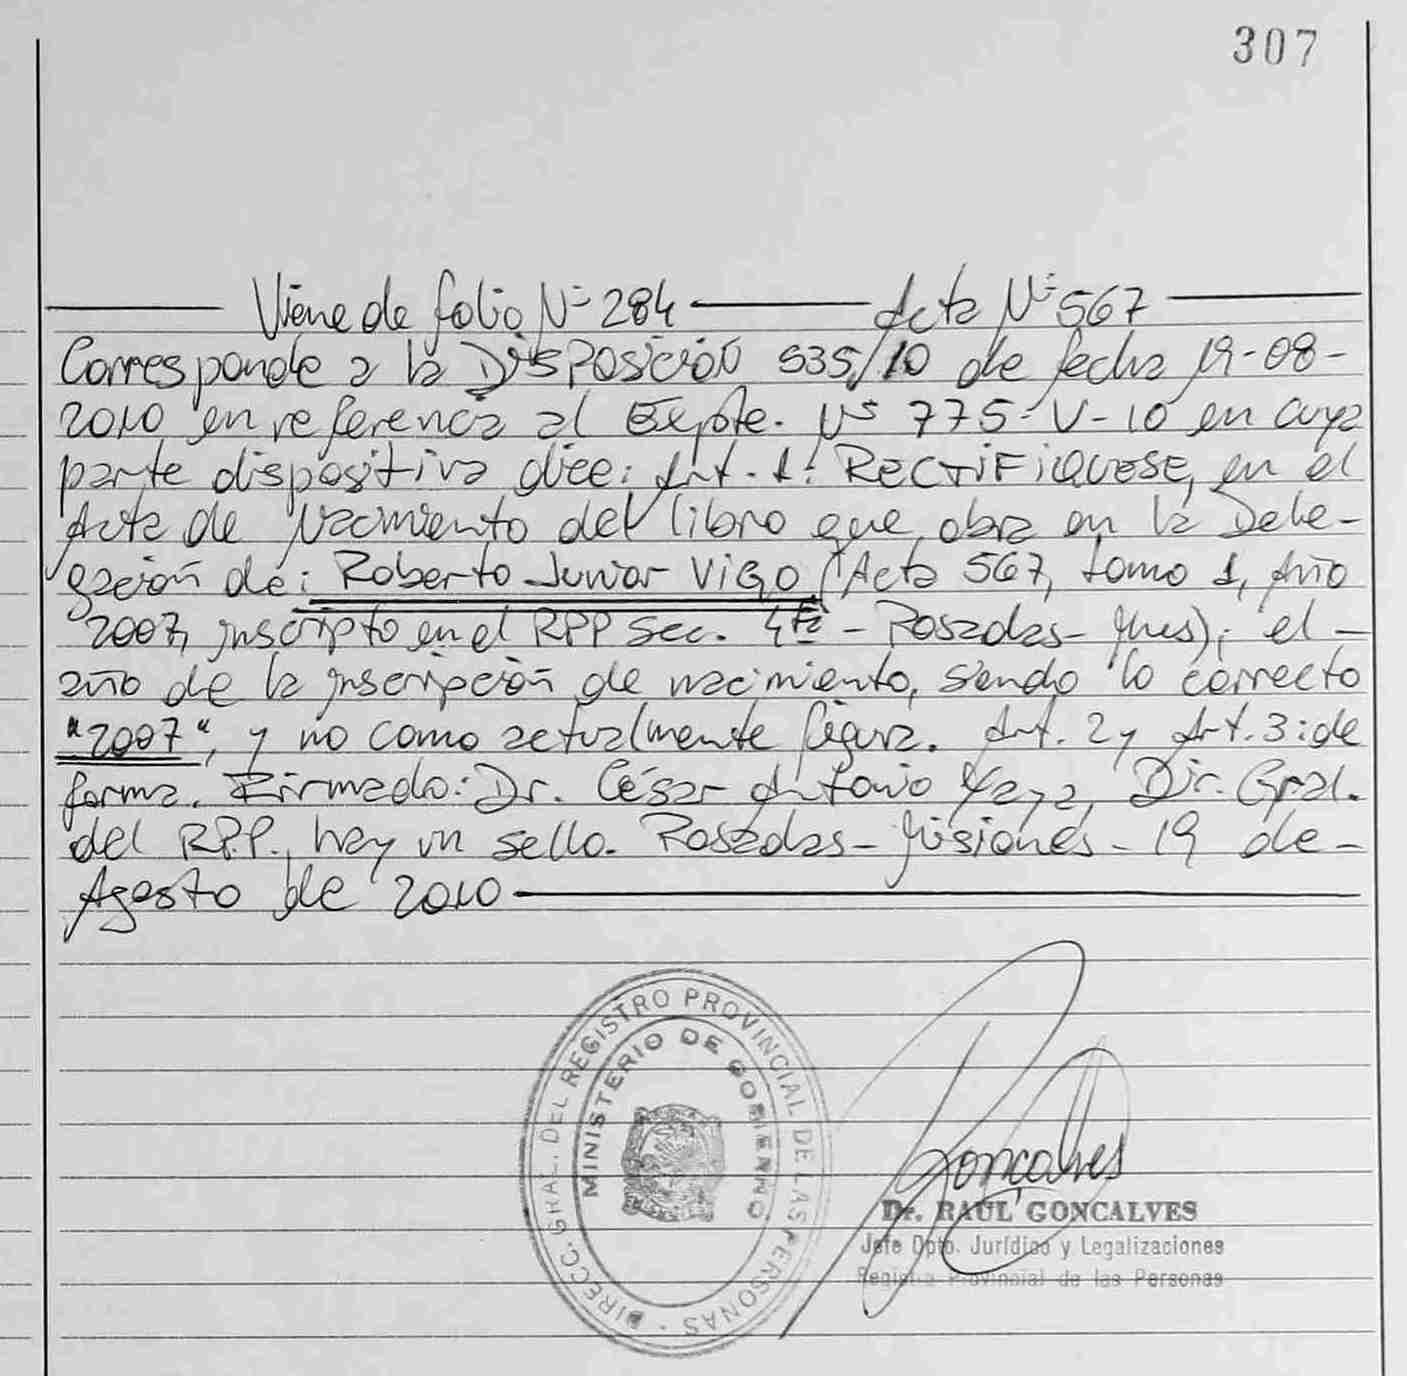 307
Viene de folio Nº 284 Acta Nº 567
Corresponde a la Disposición 535/10 de fecha 19-08-
2010 en referencia al Expte. Nº 775-V-10 en cuya
parte dispositiva dice: Art. 1: RECTIFIQUESE, en el
Acta de Nacimiento del libro que obra en la Dele-
gación de: Roberto Junior VIGO (Acta 567, tomo 1, Año
2007, inscripto en el RPP Sec. 4ta - Posadas - Mnes); el -
año de la inscripción de nacimiento, siendo lo correcto
"2007", y no como actualmente figura. Art. 2 y Art. 3: de
forma. Firmado: Dr. César Antonio Yaya, Dir. Gral.
del R.P.P., hay un sello. Posadas - Misiones - 19 de -
Agosto de 2010
DIRECC. GRAL. DEL REGISTRO PROVINCIAL DE LAS PERSONAS
MINISTERIO DE GOBIERNO
Goncalves
Dr. RAUL GONCALVES
Jefe Dpto. Jurídico y Legalizaciones
Registro Provincial de las Personas